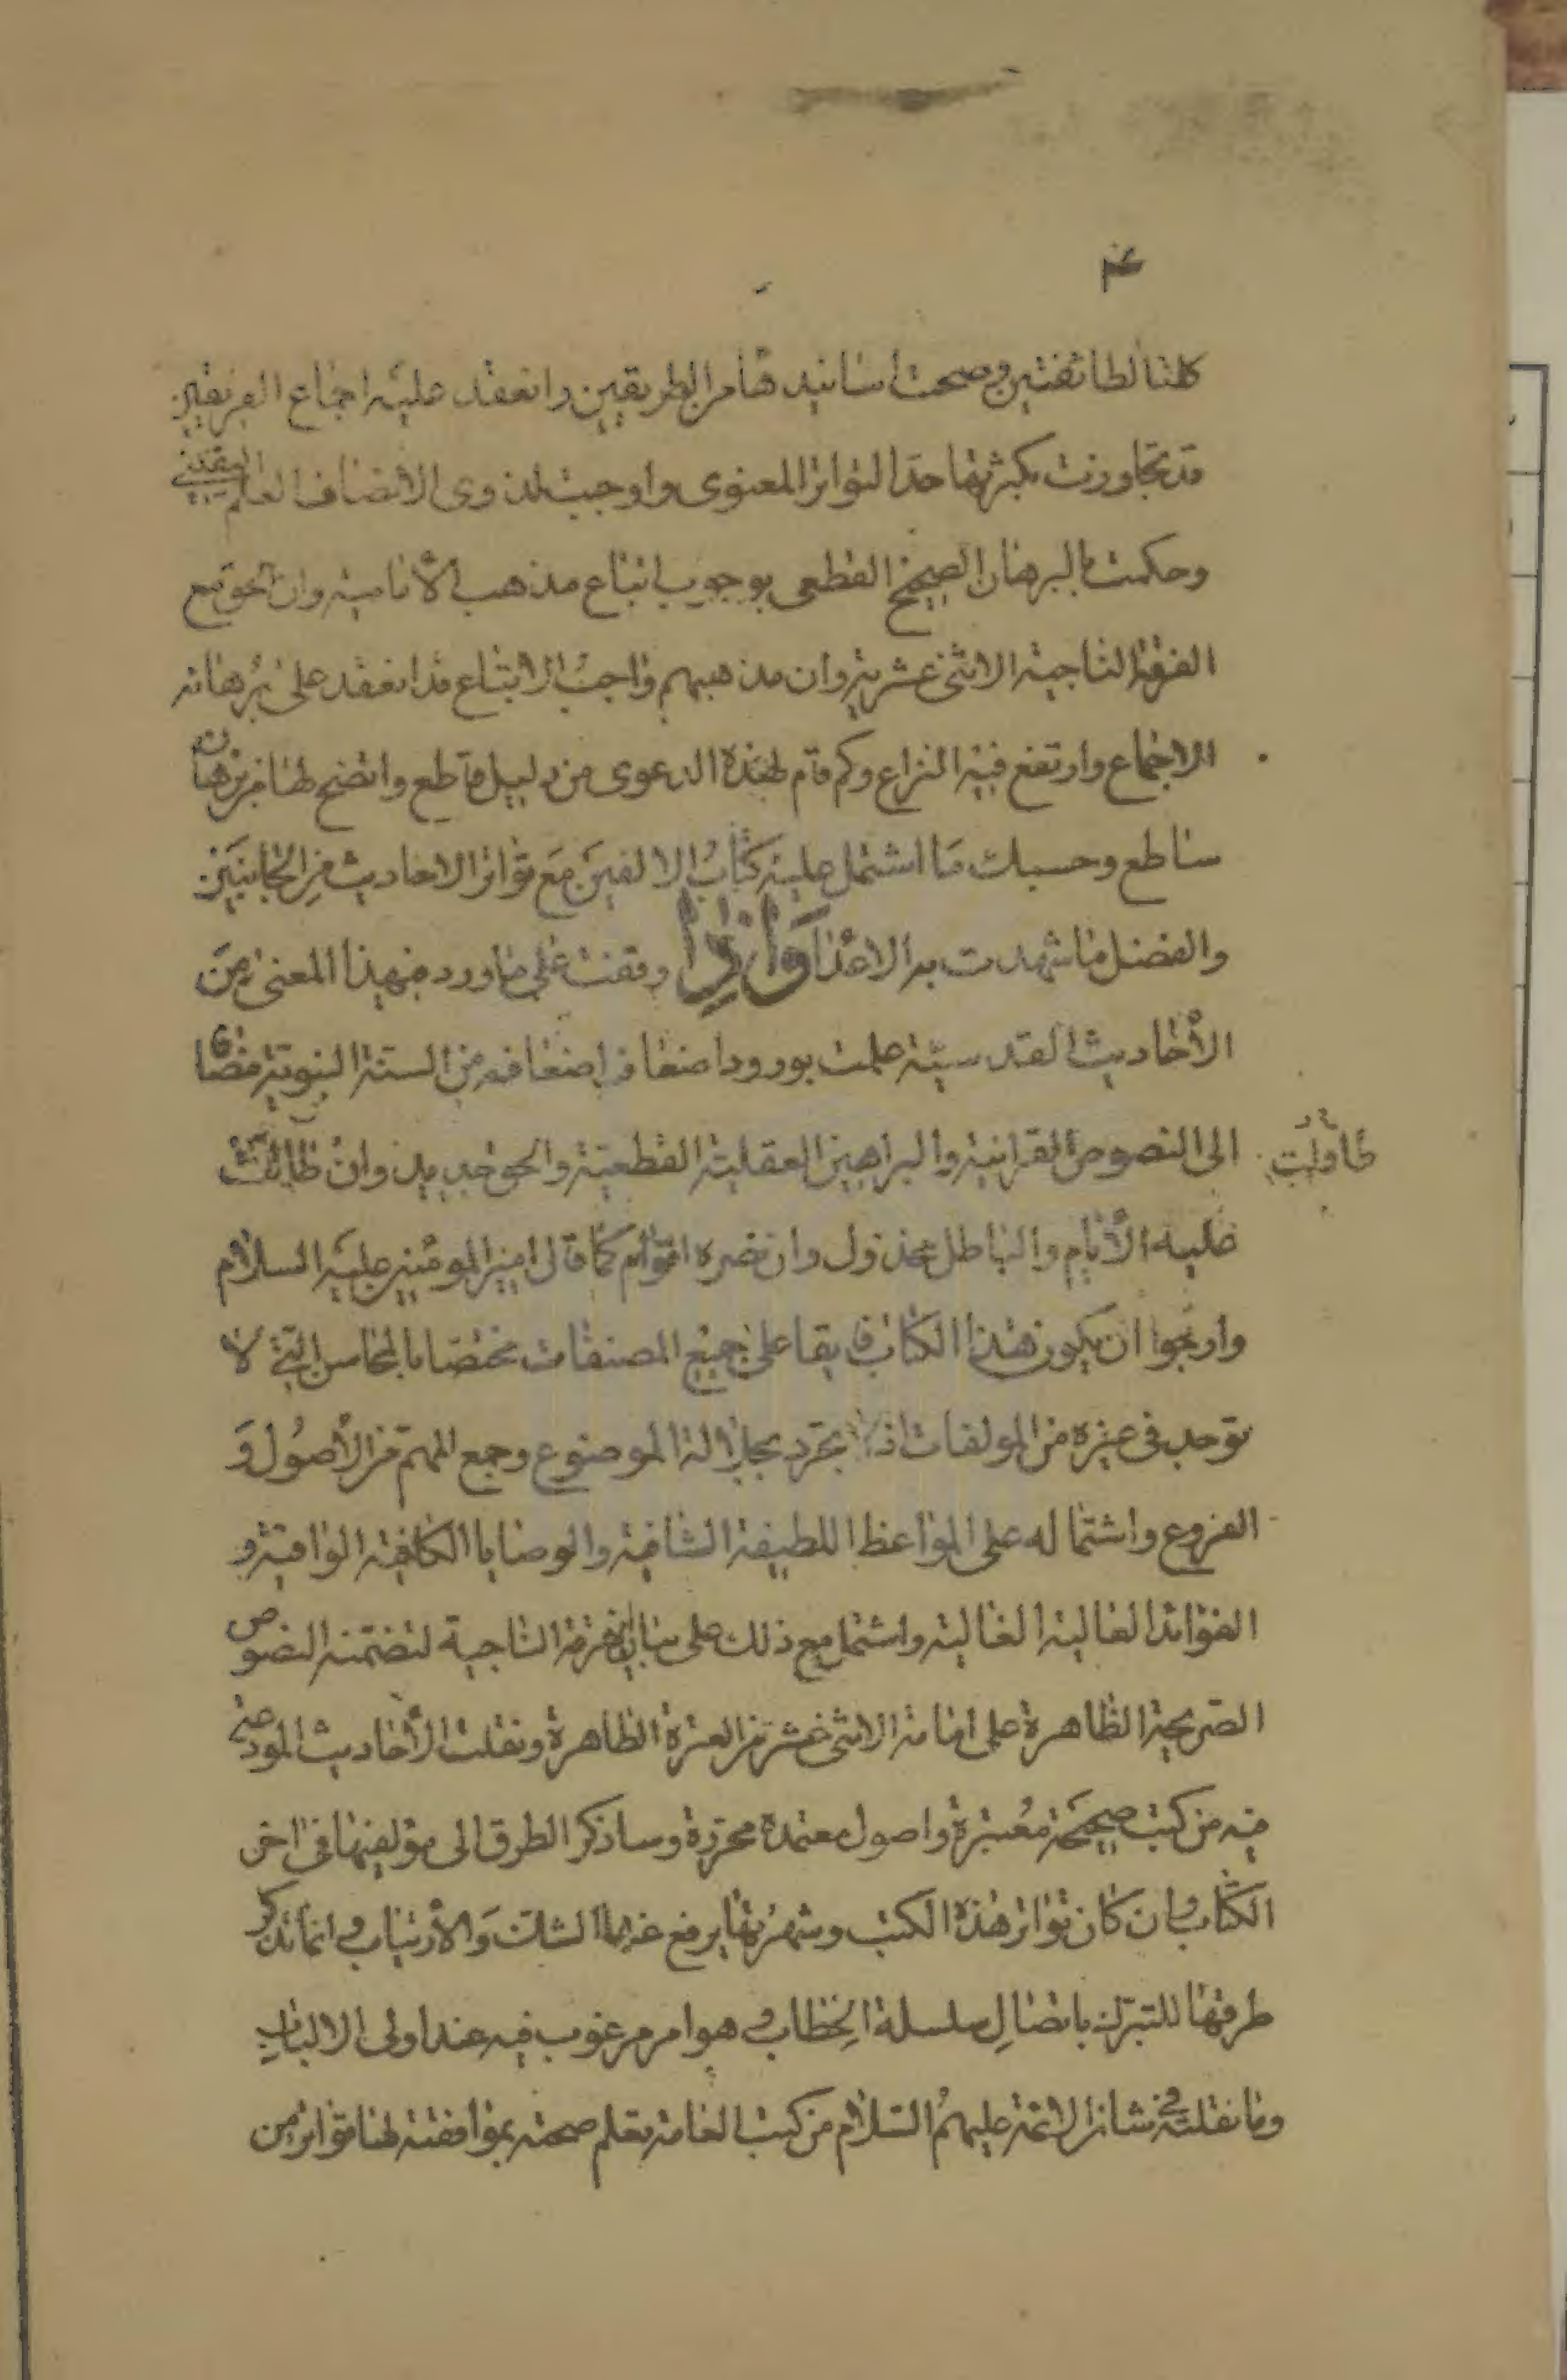 كلتا الطائفتين وصحت اسانيدها من الطريقين وانعقد عليه اجماع الفريقين
قد تجاوزت بكثرتها حد التواتر المعنوى واوجبت لذوى الانصاف العلم اليقينى
وحكمت بالبرهان الصحيح القطعى بوجوب اتباع مذهب الأمامية وان الحق مع
الفرقة الناجية الاثنى عشرية وان مذهبهم واجب الاتباع قد انعقد على برهانه
الاجماع وارتفع فيه النزاع وكم قام لهذه الدعوى من دليل قاطع واتضح لها من برهان
ساطع وحسبك ما اشتمل عليه كتاب الالفين مع تواتر الاحاديث من الجانبين
والفضل ما شهدت به الاعدا واذا وقفت على ما ورد بهذا المعنى من
الأحاديث القدسية علمت بورود اضعاف اضعافه من السنة النبوية مضافا
الى النصوص القرانية والبراهين العقلية القطعية والحق جديد وان طالت
طاولت
عليه الأيام والباطل مخذول وان نصره اقوام كما قال امير المومنين عليه السلام
وارجوا ان يكون هذا الكتاب فايقا على جميع المصنفات مختصا بالمحاسن التى لا
توجد فى غيره من المولفات اذ تجرد بجلالة الموضوع وجمع المهم من الأصول و
الفروع واشتماله على المواعظ اللطيفة الشافية والوصايا الكافية الوافية و
الفوائد العالية الغالية واشتمل مع ذلك على بيان الفرقة الناجية لتضمنه النصوص
الصريحة الظاهرة على امامة الاثنى عشر من العترة الطاهرة ونقلت الأحاديث المودعة
فيه من كتب صحيحة معتبرة واصول معتمدة محررة وساذكر الطرق الى مؤلفيها فى اخر
الكتاب وان كان تواتر هذه الكتب وشهرتها يرفع عنها الشك والأرتياب وانما نذكر
طرقها للتبرك باتصال سلسلة الخطاب وهو امر مرغوب فيه عند اولى الالباب
وما نقلته فى شان الائمة عليهم السلام من كتب العامة تعلم صحته بموافقته لما تواتر من